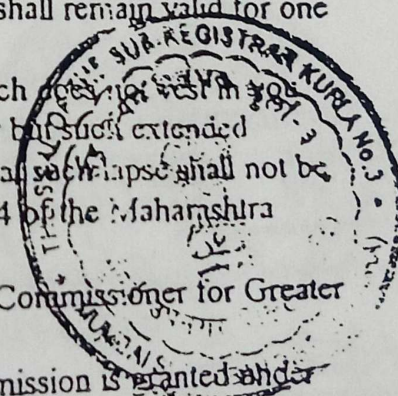 shall remain valid for one
ch does not vest in you
but such extended
such lapse shall not be
of the Maharashtra
Commissioner for Greater
mission is granted under
SUB REGISTRAR KURLA No. 3
MUMBAI